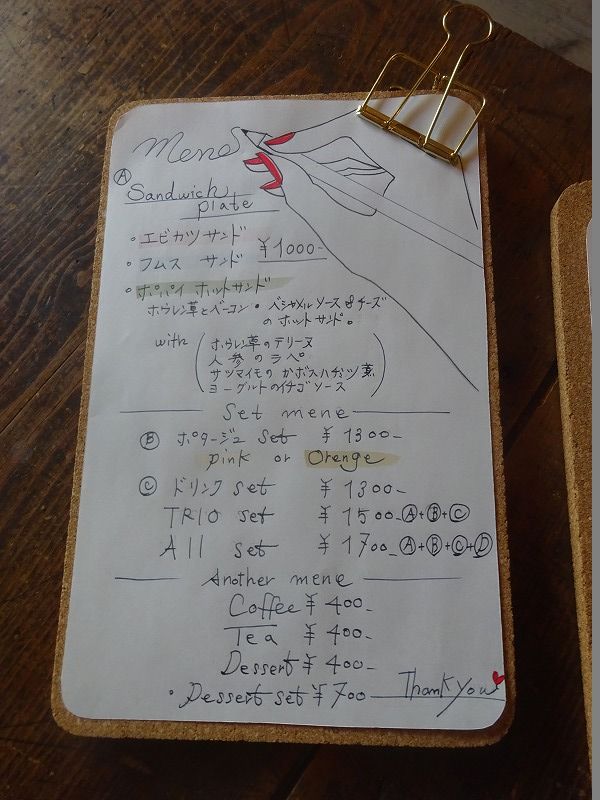 menu
Ⓐ Sandwich
plate
・エビカツサンド
・フムス サンド ¥1000-
・ポパイ ホットサンド
ホウレン草とベーコン・ベシャメルソース&チーズ
のホットサンド。
with
ホウレン草のテリーヌ
人参のラペ
サツマイモのカボスハチミツ煮
ヨーグルトのイチゴソース
Set mene
Ⓑ ポタージュ set ¥1300-
pink or Orenge
Ⓒ ドリンク set ¥1300-
TRIO set ¥1500-Ⓐ+Ⓑ+Ⓒ
All set ¥1700-Ⓐ+Ⓑ+Ⓒ+Ⓓ
Another mene
Coffee ¥400-
Tea ¥400-
Dessert ¥400-
・Dessert set ¥700
Thank you